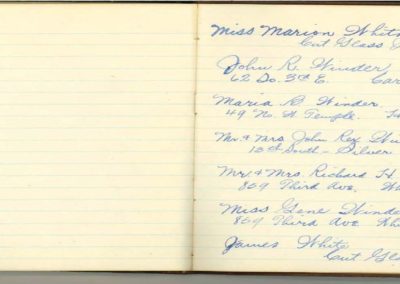 Miss Marion White
Cut Glass
John R. Winder
62 So. 3rd E.
Maria B. Winder
49 No. W. Temple
Mr. & Mrs John Rex
13th South - Silver
Mr. & Mrs Richard H
869 Third Ave.
Miss Gene Winder
869 Third Ave
James White
Cut Glass